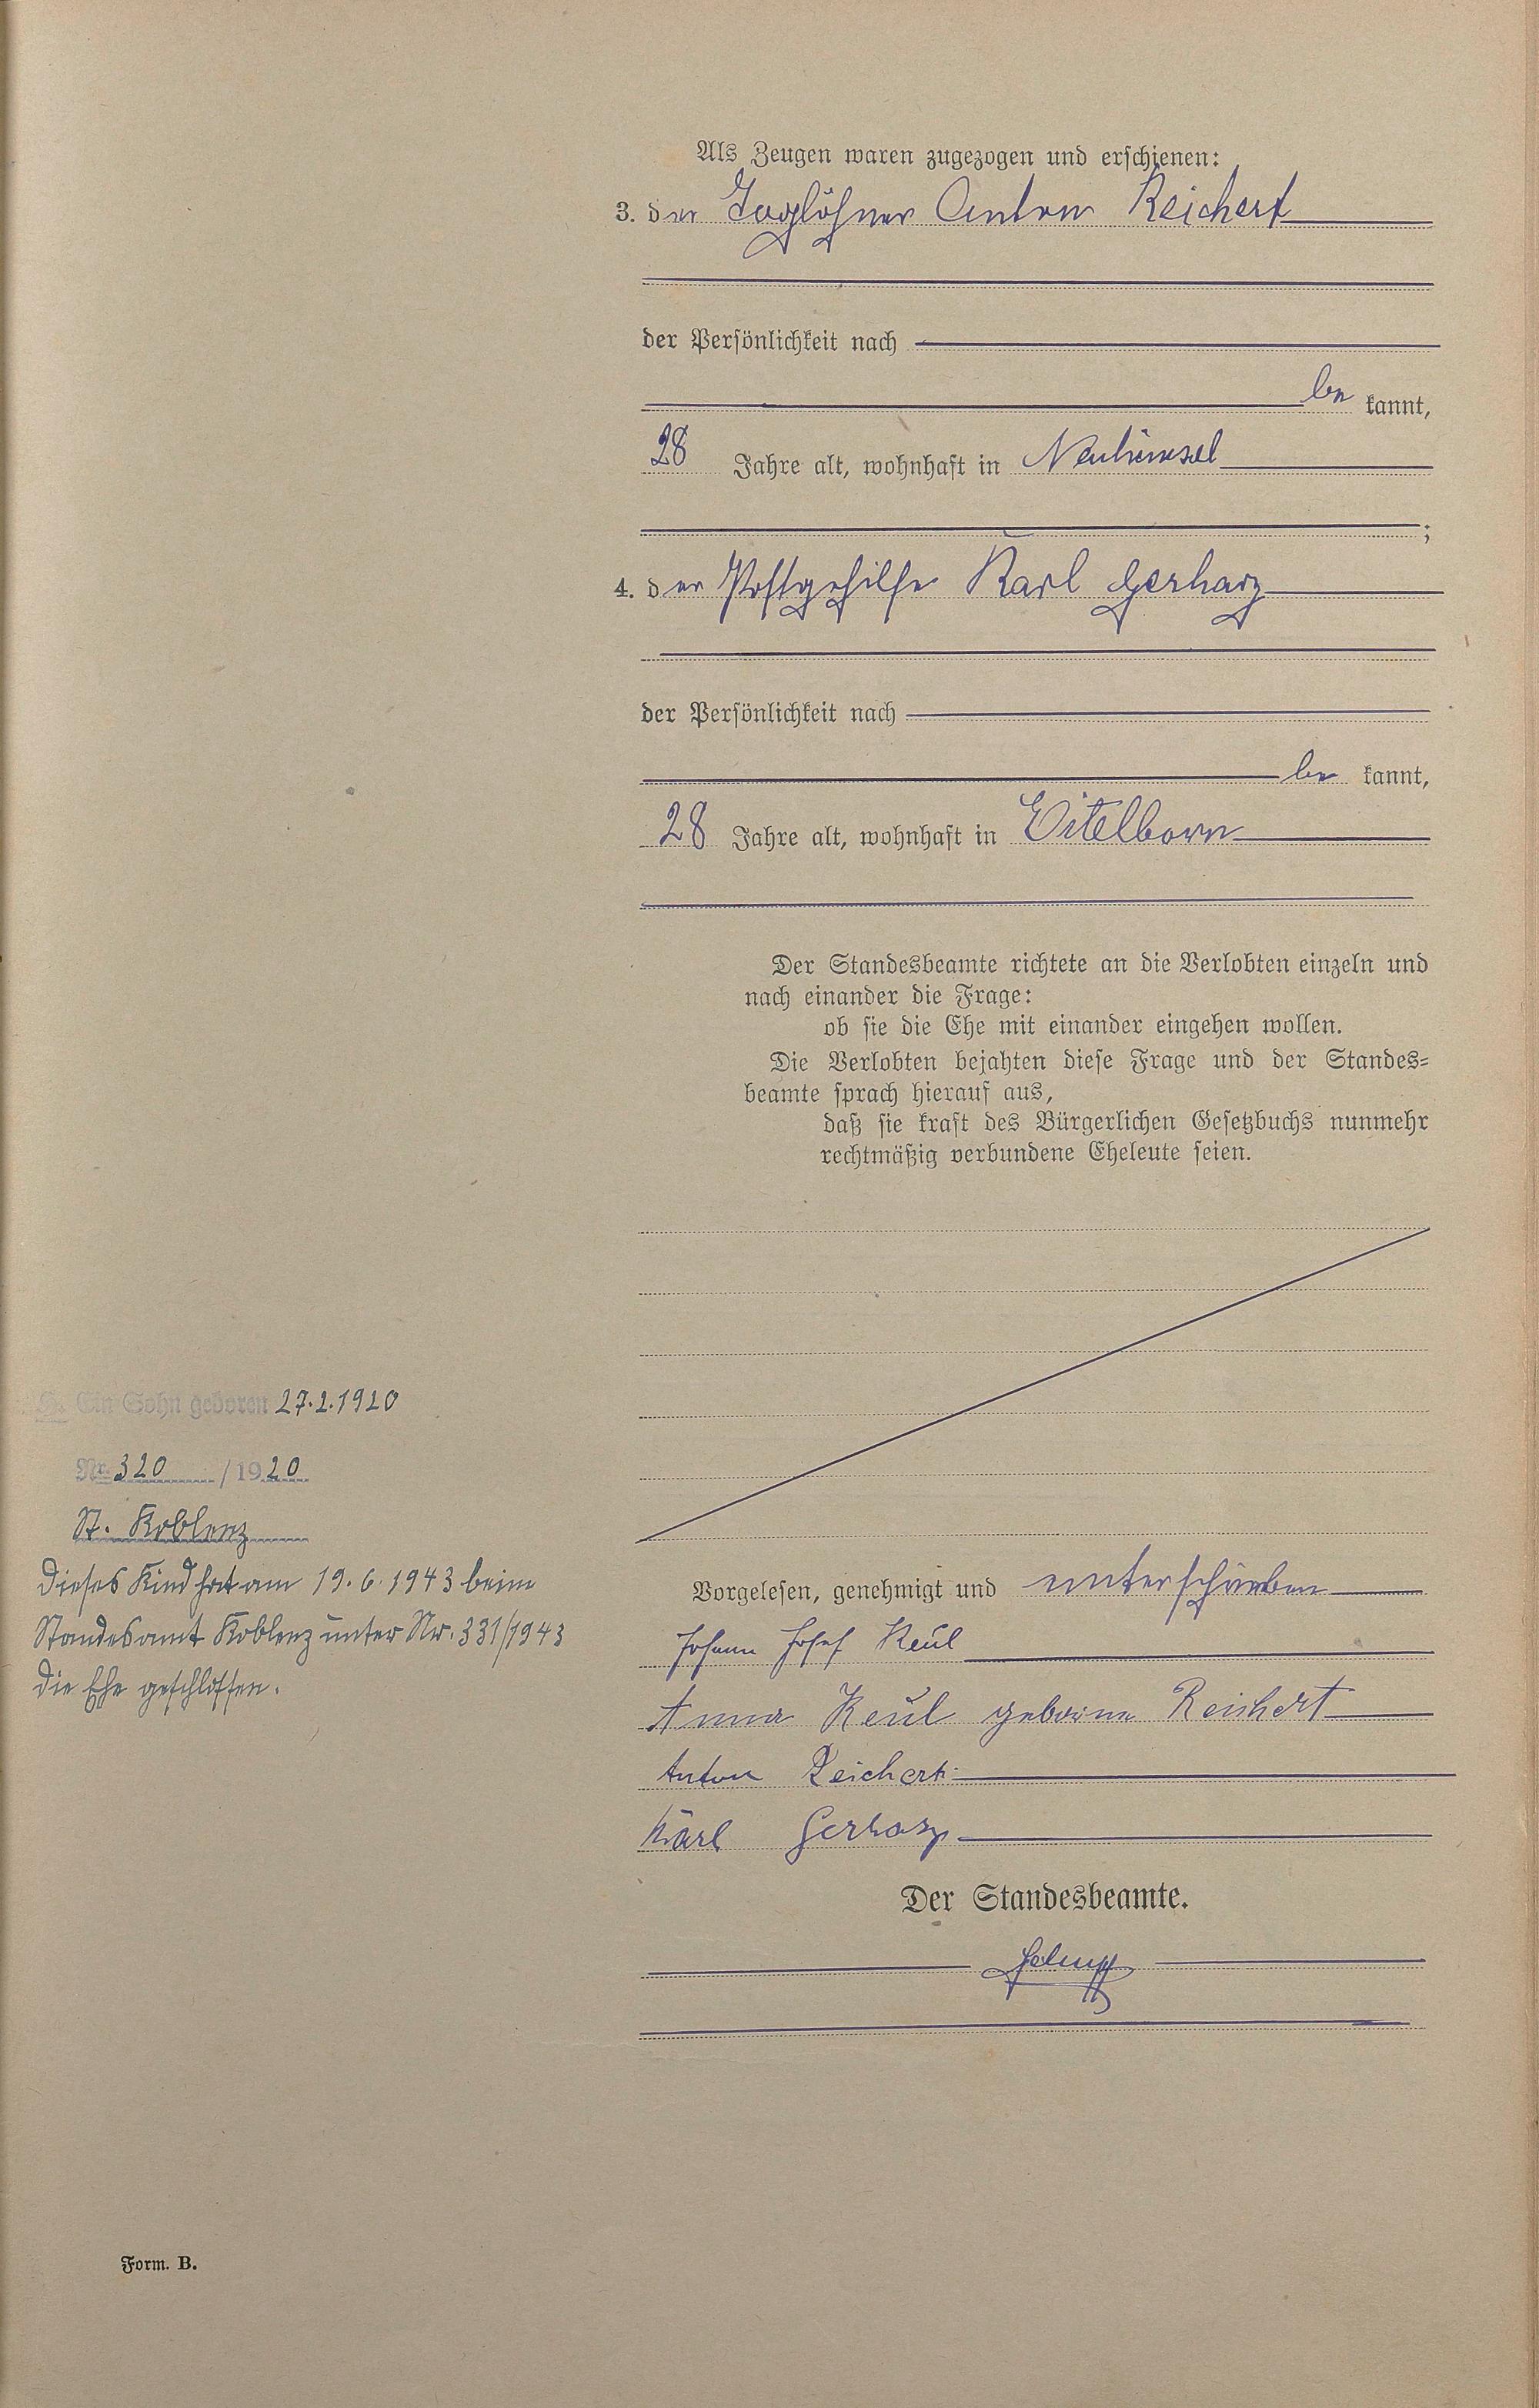 Als Zeugen waren zugezogen und erschienen:
3. der Taglöhner Anton Reichert
der Persönlichkeit nach
be kannt,
28 Jahre alt, wohnhaft in Neuhäusel
;
4. der Postgehilfe Karl Gerharz
der Persönlichkeit nach
be kannt,
28 Jahre alt, wohnhaft in Eitelborn
Der Standesbeamte richtete an die Verlobten einzeln und
nach einander die Frage:
ob sie die Ehe mit einander eingehen wollen.
Die Verlobten bejahten diese Frage und der Standes-
beamte sprach hierauf aus,
daß sie kraft des Bürgerlichen Gesetzbuchs nunmehr
rechtmäßig verbundene Eheleute seien.
Ein Sohn geboren 27.2.1920
Nr. 320 / 1920
St. Koblenz
Dieses Kind hat am 19.6.1943 beim
Standesamt Koblenz unter Nr. 331/1943
die Ehe geschlossen.
Vorgelesen, genehmigt und unterschrieben
Johann Josef Keul
Anna Keul geborene Reichert
Anton Reichert
Karl Gerharz
Der Standesbeamte.
Form. B.